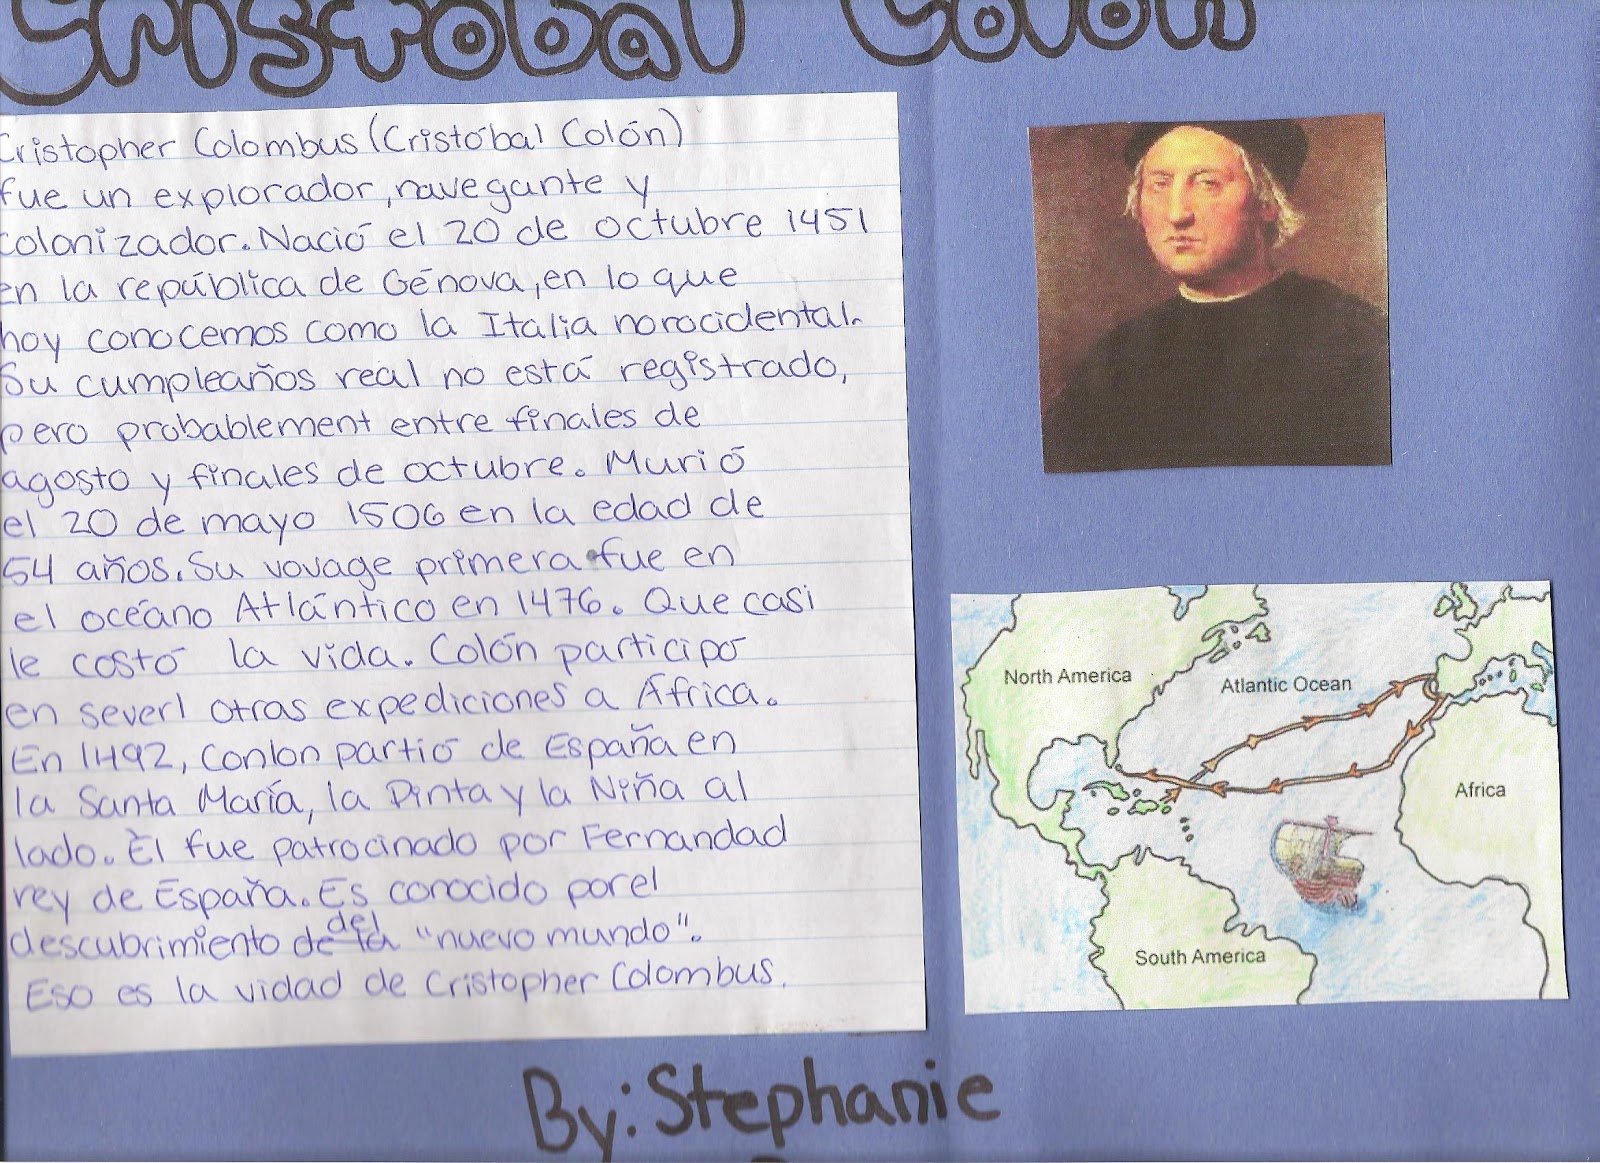 Cristobal Colón
Cristopher Colombus (Cristóbal Colón)
fue un explorador, navegante y
colonizador. Nació el 20 de octubre 1451
en la república de Génova, en lo que
hoy conocemos como la Italia norocidental.
Su cumpleaños real no está registrado,
pero probablement entre finales de
agosto y finales de octubre. Murió
el 20 de mayo 1506 en la edad de
54 años. Su vovage primera fue en
el océano Atlántico en 1476. Que casi
le costó la vida. Colón participó
en severl otras expediciones a África.
En 1492, Conlon partió de España en
la Santa María, la Pinta y la Niña al
lado. Él fue patrocinado por Fernandad
rey de España. Es conocido por el
descubrimiento del "nuevo mundo".
Eso es la vidad de Cristopher Colombus.
North America
Atlantic Ocean
Africa
South America
By: Stephanie